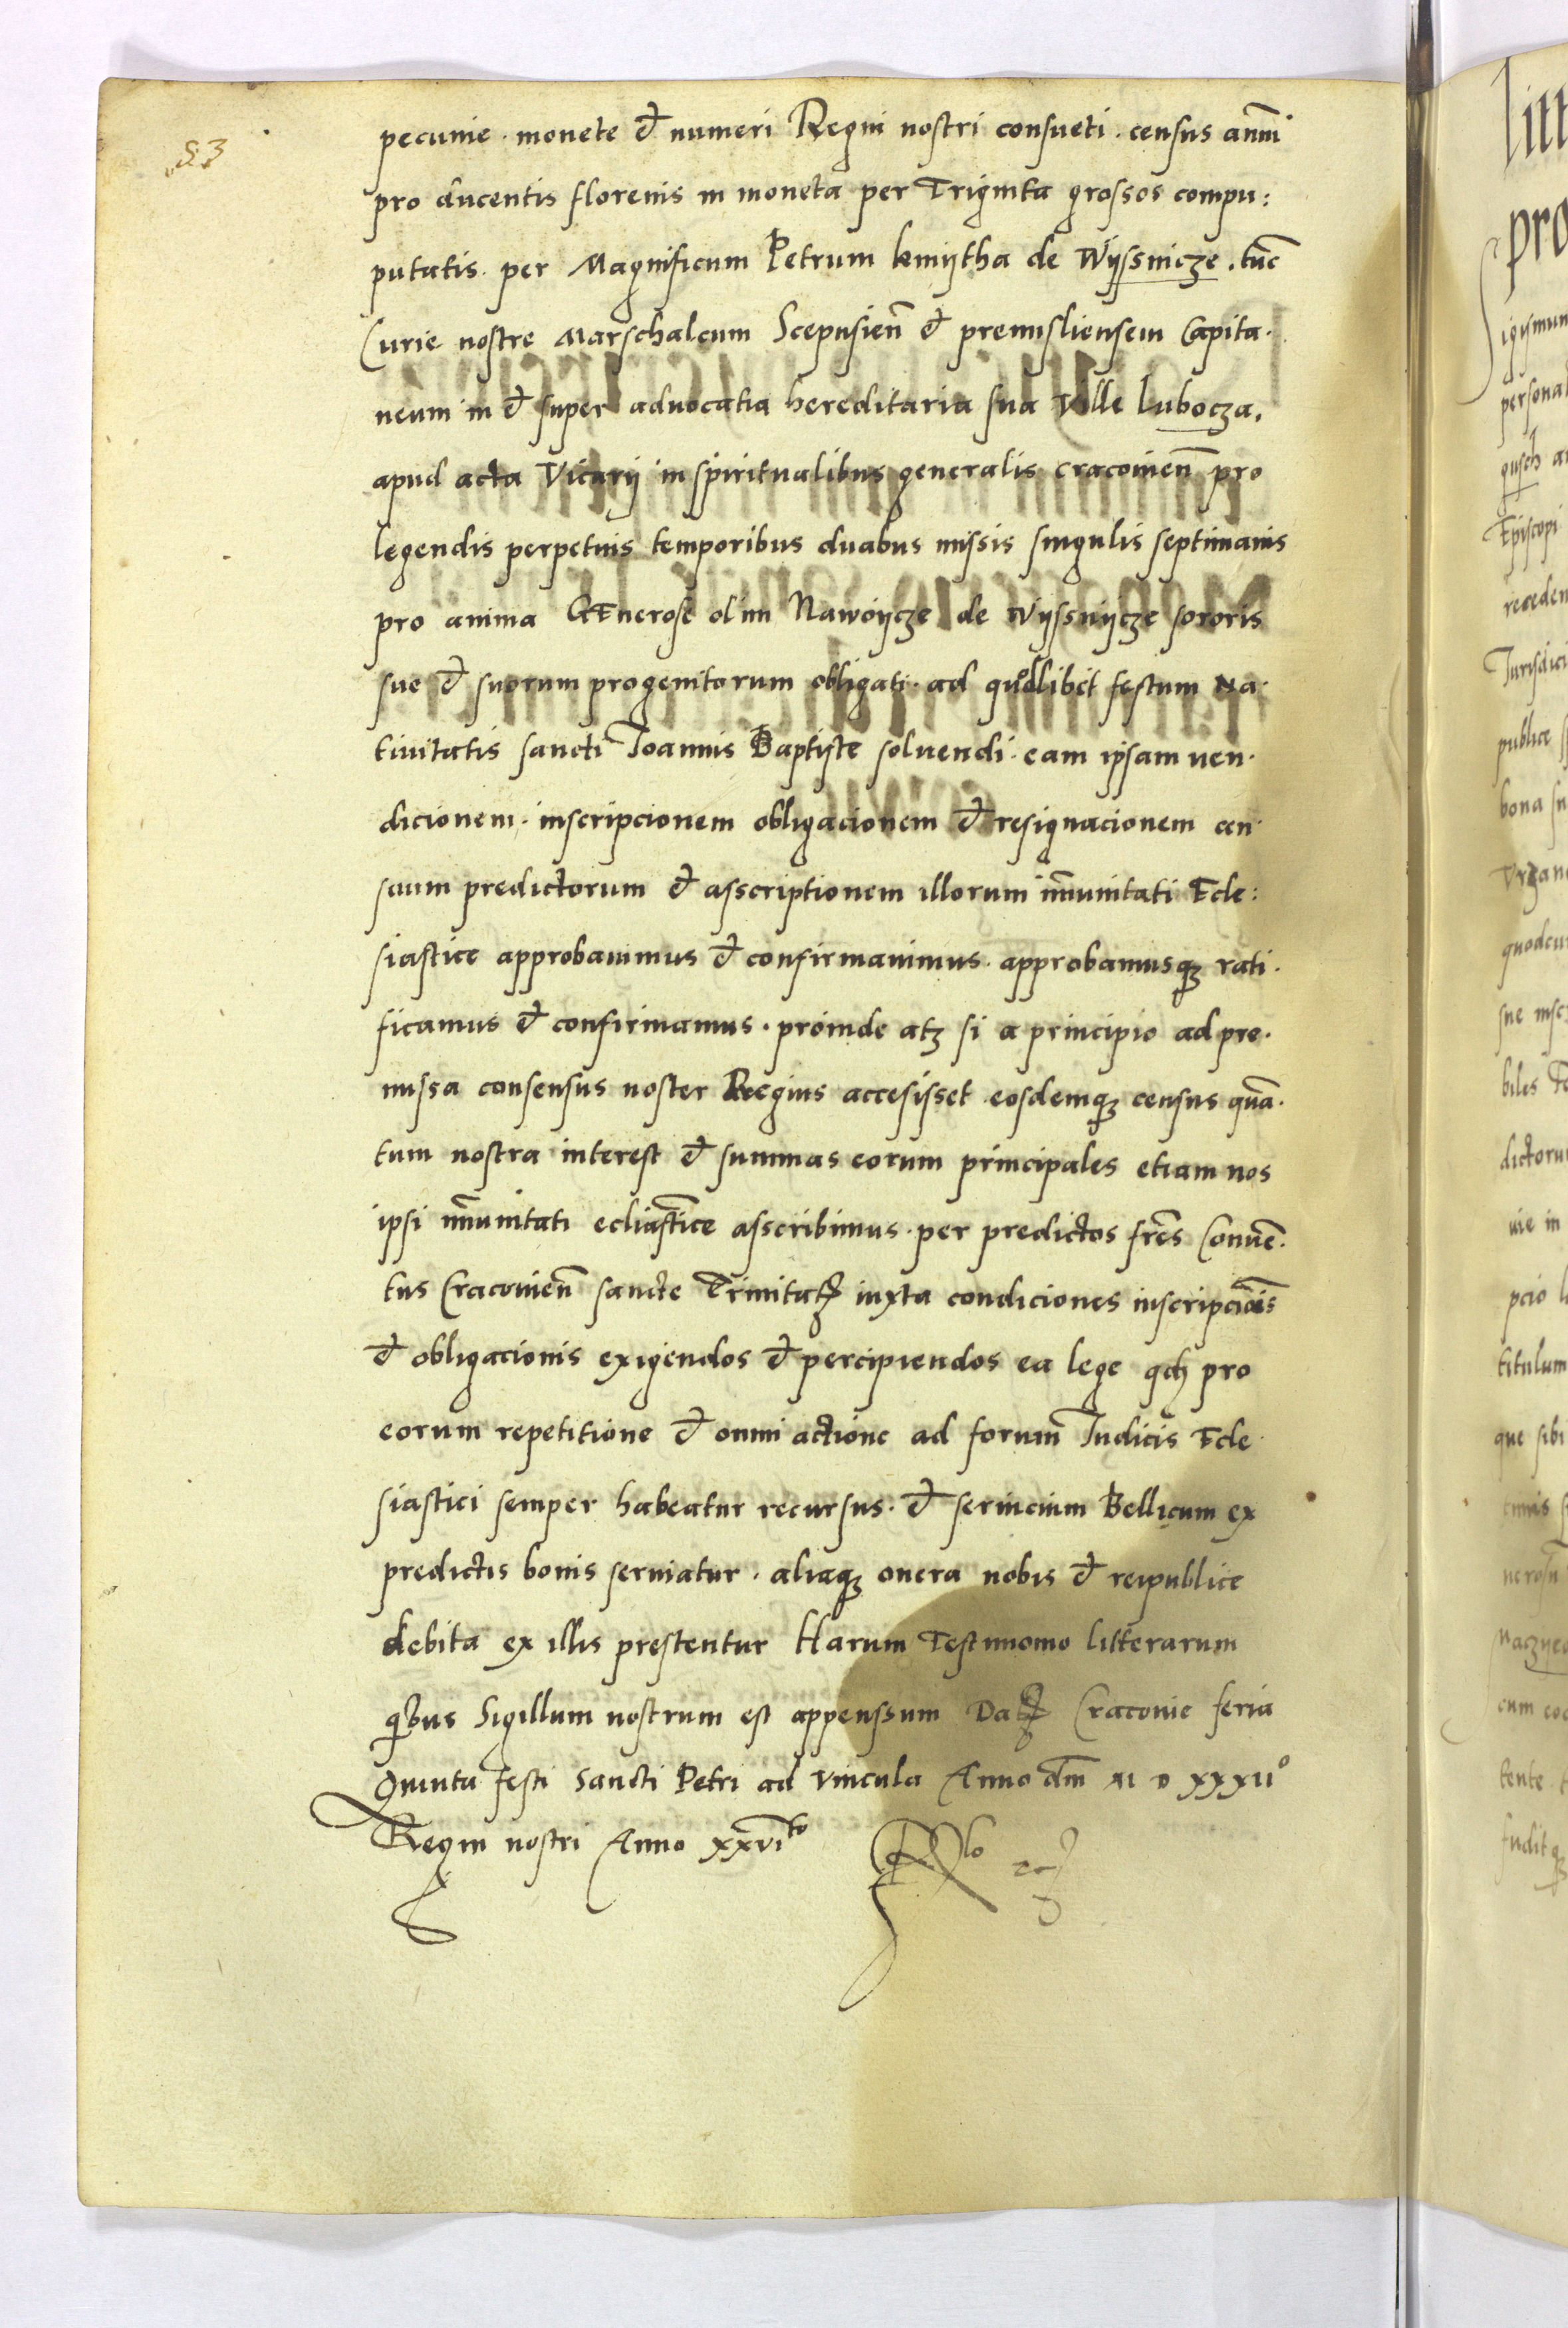 83
pecunie · monete et numeri Regni nostri consueti · census annui
pro ducentis florenis in moneta per Triginta grossos compu:
putatis · per Magnificum Petrum kmijtha de Wijssnicze · tūc
Curie nostre Marschalcum Scepusieñ et premisliensem Capita·
neum in et super aduocatia hereditaria sua Ville Lubocza,
apud acta Vicarij in spiritualibus generalis cracouieñ pro
legendis perpetuis temporibus duabus missis singulis septimanis
pro anima GEnerose olim Nawoijcze de Wijssnijcze sororis
sue et suorum progenitorum obligati · ad quodlibet festum Na·
tiuitatis sancti Joannis Baptiste soluendi · eam ipsam uen·
dicionem · inscripcionem obligacionem et resignacionem cen·
suum predictorum et asscriptionem illorum īmunitati Ecle:
siastice approbauimus et confirmauimus · approbamusqȝ rati·
ficamus et confirmamus · proinde atqȝ si a principio ad pre·
missa consensus noster Regius accesisset eosdemqȝ census quā·
tum nostra interest et summas eorum principales etiam nos
ipsi īmunitati ecliastice asscribimus · per predictos frēs Conuē·
tus Cracouieñ sancte Trinitatꝭ iuxta condiciones inscripciōis
et obligacionis exigendos et percipiendos ea lege qđ pro
eorum repetitione et omni actione ad forum Judicis Ecle·
siastici semper habeatur recursus · et seruicium Bellicum ex
predictis bonis seruiatur · aliaqȝ onera nobis et reipublice
debita ex illis prestentur Harum Testimonio litterarum
qibus Sigillum nostrum est appenssum Datꝭ Cracouie feria
Quinta festi Sancti Petri ad vincula Anno dm̄ M D XXXII°
Regni nostri Anno xxvi<sup>to</sup>
litt
pro
igismun
persona
qusch a
Episcopi
receden
Jurisdici
publice
bona su
quodcu
sue insc
biles
dictoru
uie in
pcio
titulum
que sibi
nerosu
cum eo
tente
fuditqȝ